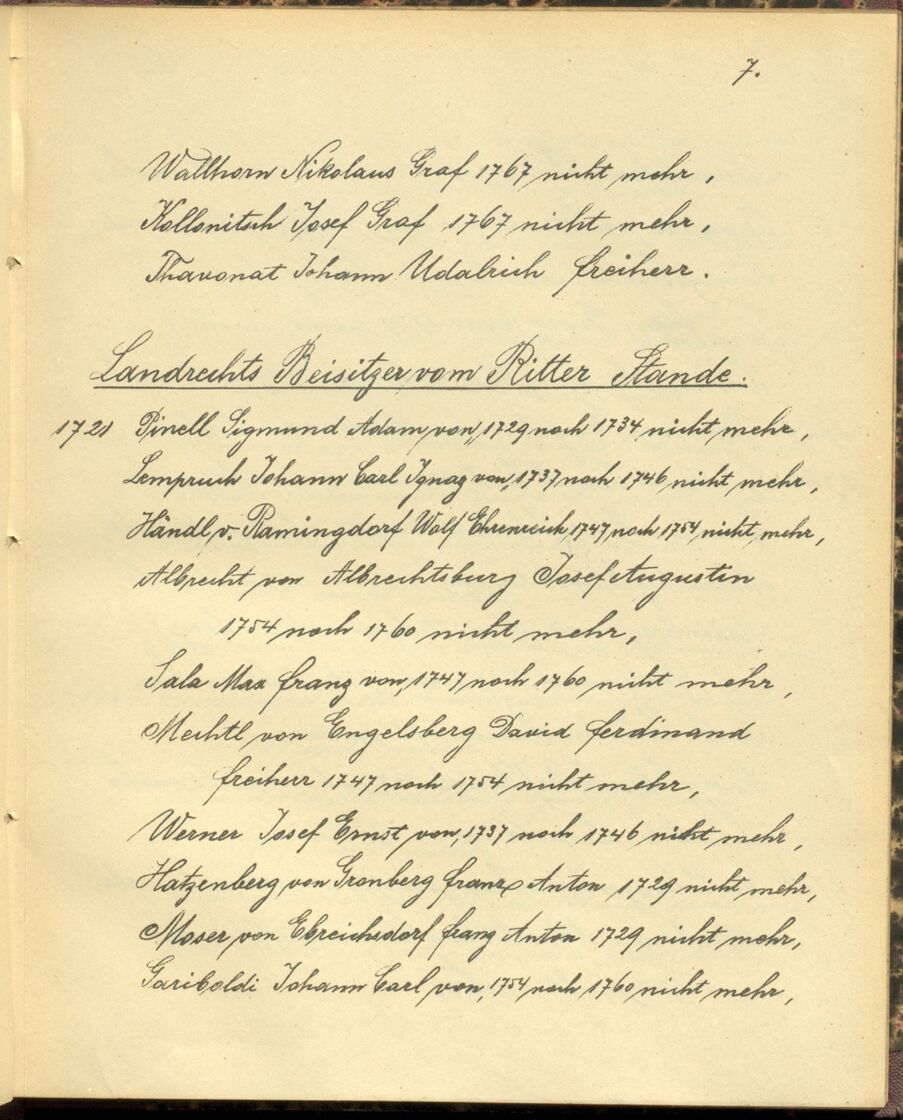 7.
Wallhorn Nikolaus Graf 1767 nicht mehr,
Kollonitsch Josef Graf 1767 nicht mehr,
Thavonat Johann Udalrich Freiherr.
Landrechts Beisitzer vom Ritter Stande.
1721 Pinell Sigmund Adam von, 1729 noch 1734 nicht mehr,
Lempruch Johann Carl Ignaz von, 1737 noch 1746 nicht mehr,
Händl v. Ramingdorf Wolf Ehrenreich, 1747 noch 1754 nicht mehr,
Albrecht von Albrechtsburg Josef Augustin
1754 noch 1760 nicht mehr,
Sala Max Franz von, 1747 noch 1760 nicht mehr,
Mechtl von Engelsberg David Ferdinand
Freiherr 1747 noch 1754 nicht mehr,
Werner Josef Ernst von, 1737 noch 1746 nicht mehr,
Hatzenberg von Gronberg Franz Anton 1729 nicht mehr,
Moser von Ebreichsdorf Franz Anton 1729 nicht mehr,
Gariboldi Johann Carl von, 1754 noch 1760 nicht mehr,